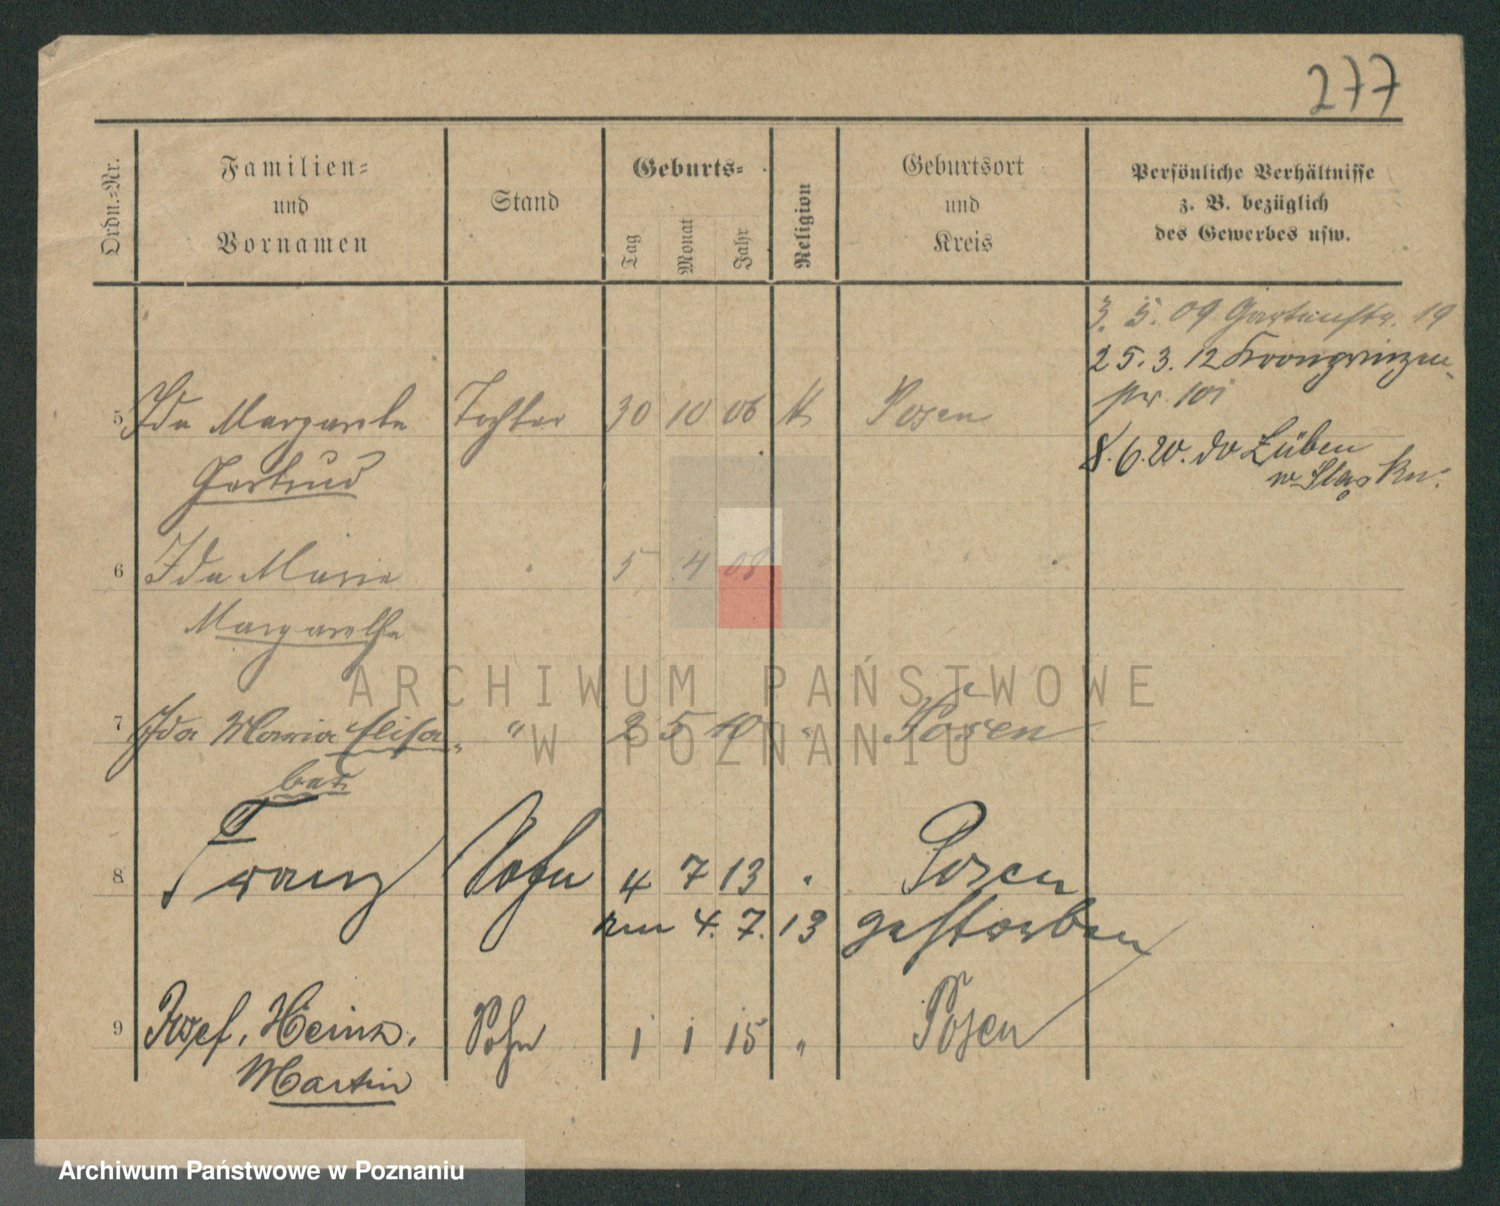 277
Ordn.-Nr.
Familien-
und
Vornamen
Stand
Geburts-
Tag
Monat
Jahr
Religion
Geburtsort
und
Kreis
Persönliche Verhältnisse
z. B. bezüglich
des Gewerbes usw.
3. 5. 09 Gartenstr. 19
25. 3. 12 Kronprinzen-
str. 101
5 Ida Margarete Tochter 30 10 06 k Posen
Gertrud
8. 6. 20. do Lüben
6 Ida Maria " 5 4 08 " "
Margarethe
7 Ida Maria Elisa- " 2 5 10 " Posen
bet
8 Franz Sohn 4 7 13 " Posen
am 4. 7. 13 gestorben
9 Josef, Heinz, Sohn 1 1 15 " Posen
Martin
ARCHIWUM PAŃSTWOWE
W POZNANIU
Archiwum Państwowe w Poznaniu